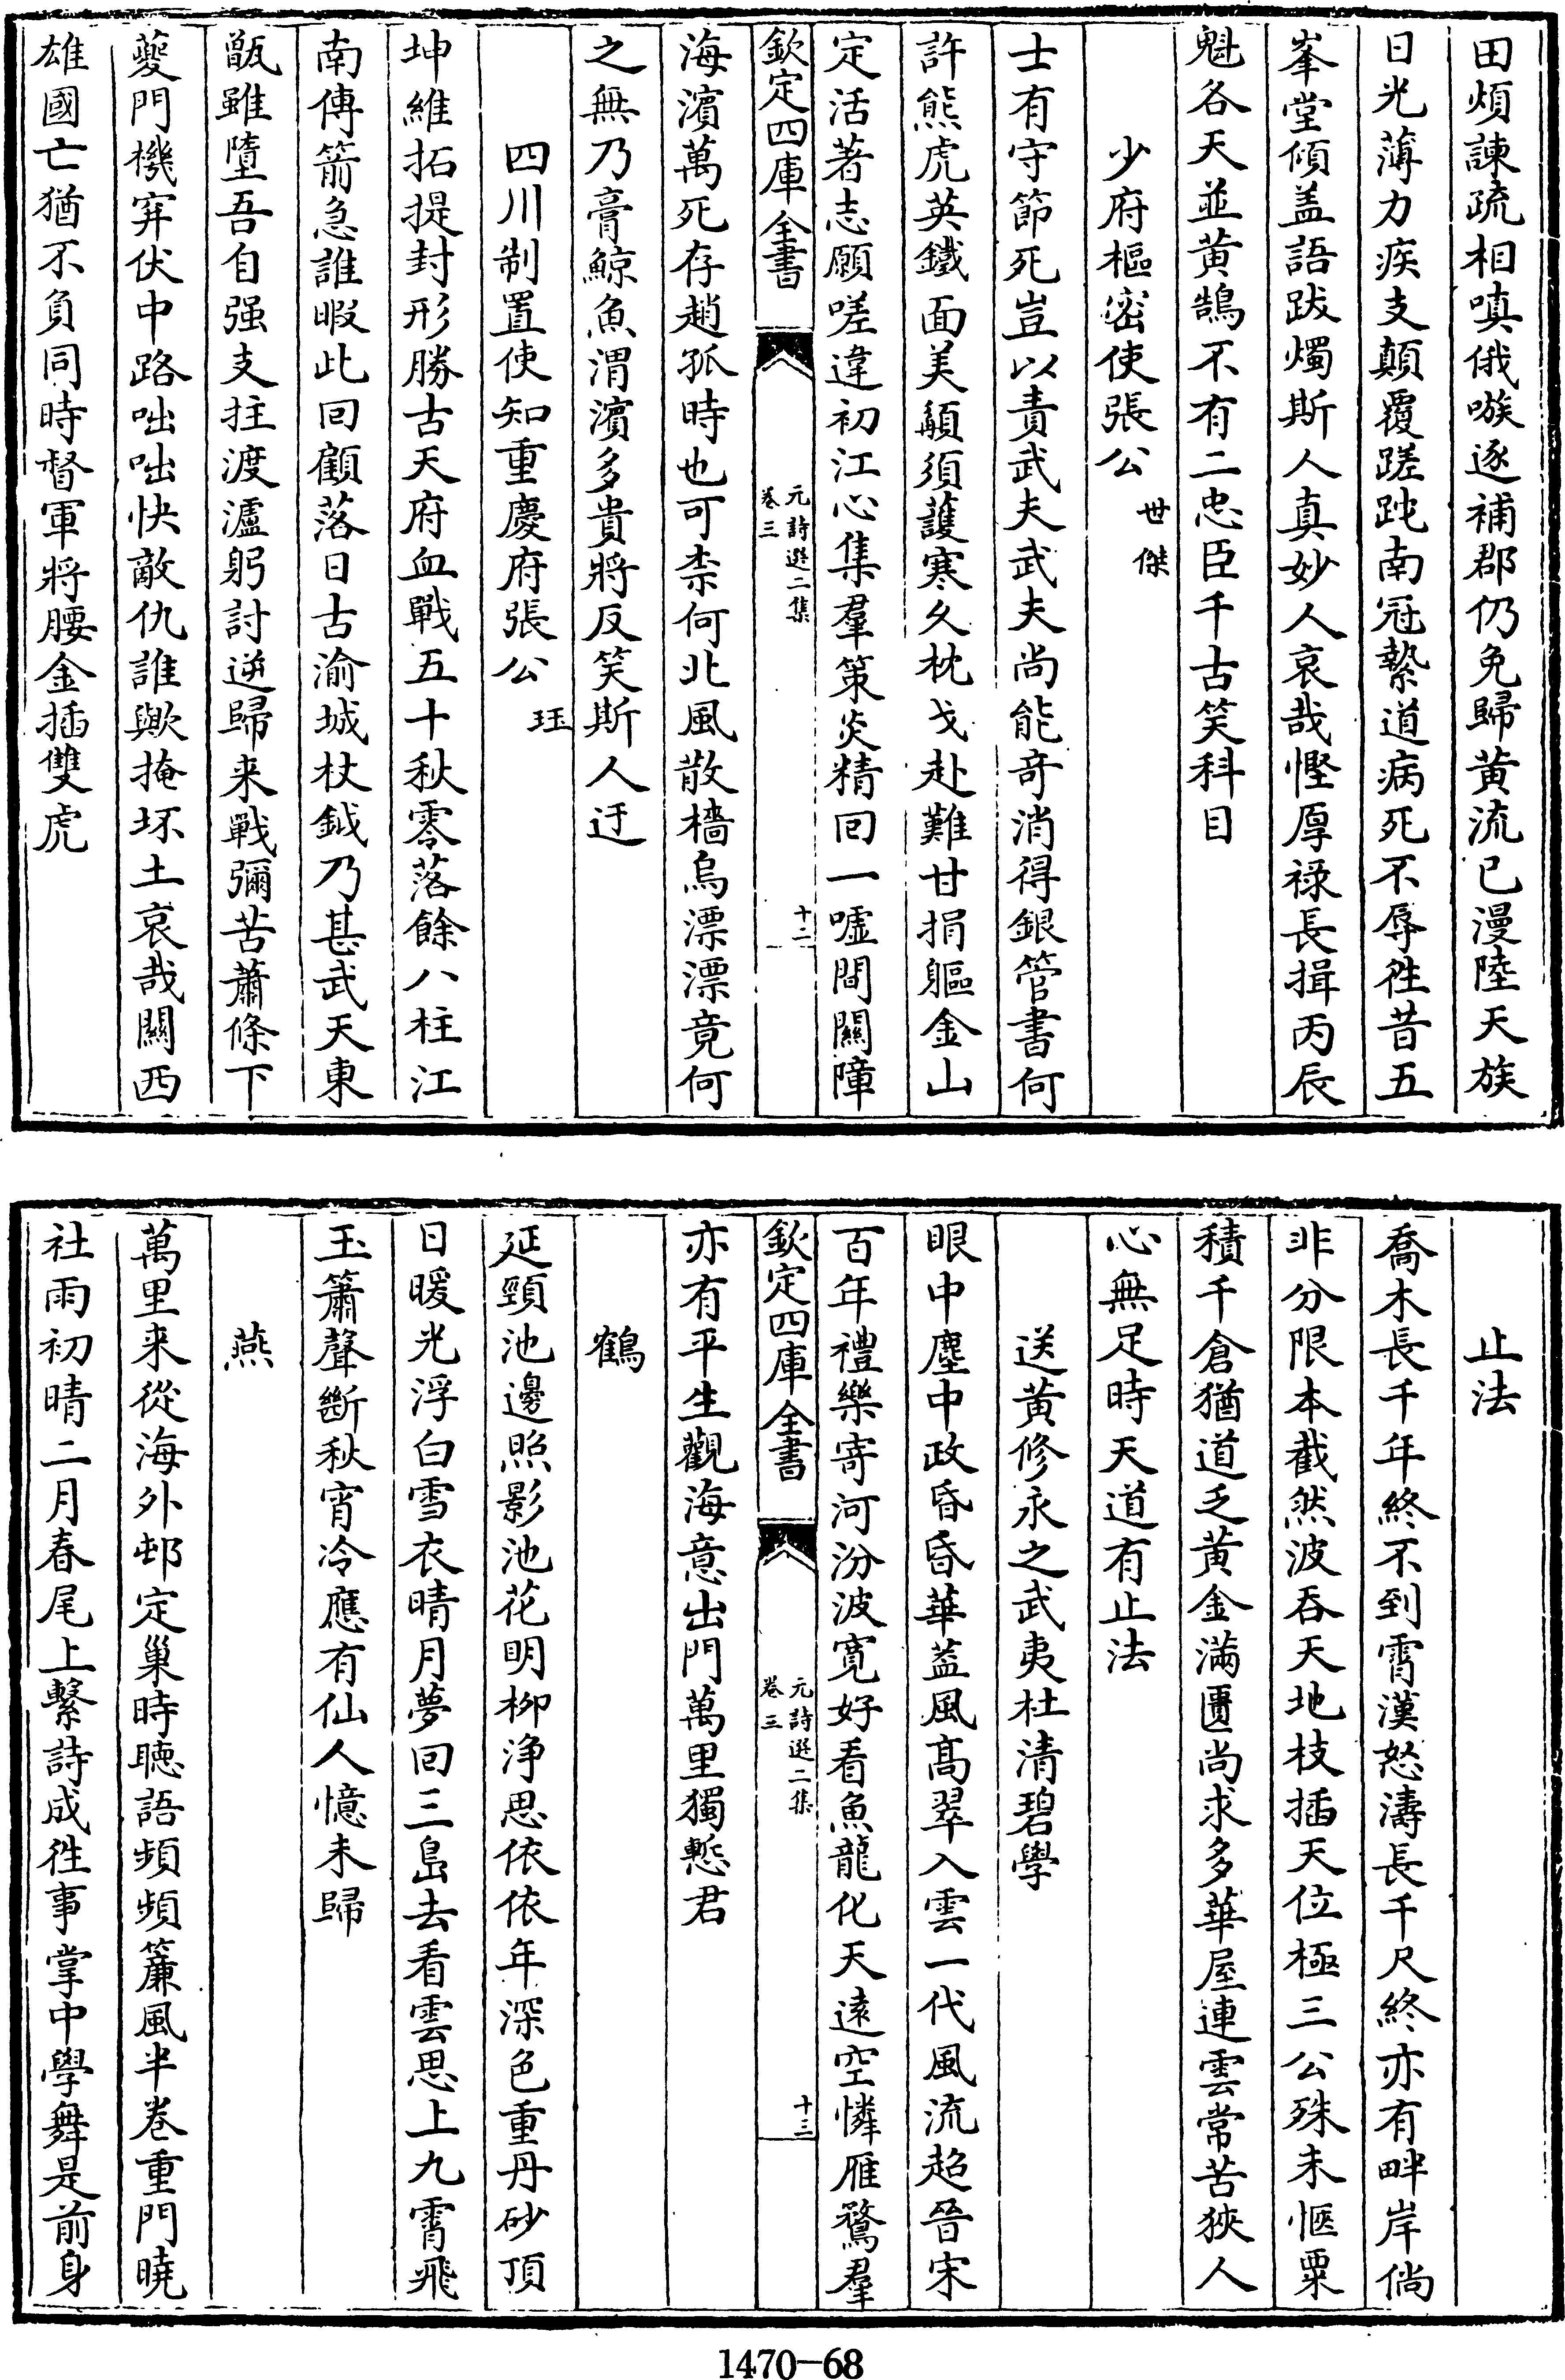 田煩諫疏相嗔俄嗾逐補郡仍免歸黄流已漫陸天族
日光薄力疾支顛覆蹉跎南冠縶道病死不辱徃昔五
峯堂傾盖語跋燭斯人真妙人哀哉慳厚禄長揖丙辰
魁各天並黄鵠不有二忠臣千古笑科目
少府樞密使張公世傑
士有守節死豈以責武夫武夫尚能竒消得銀管書何
許熊虎英鐵面美顬須護寒久枕戈赴難甘捐軀金山
定活著志願嗟違初江心集羣策炎精回一嘘間關障
欽定四庫全書
元詩選二集
卷三
十二
海濱萬死存趙孤時也可柰何北風散檣烏漂漂竟何
之無乃膏鯨魚渭濱多貴將反笑斯人迂
四川制置使知重慶府張公珏
坤維拓提封形勝古天府血戰五十秋零落餘八柱江
南傳箭急誰暇此回顧落日古渝城杖鉞乃甚武天東
甑雖墮吾自强支拄渡瀘躬討逆歸来戰彌苦蕭條下
夔門機穽伏中路咄咄快敵仇誰歟掩坏土哀哉關西
雄國亡猶不負同時督軍將腰金插雙虎
止法
喬木長千年終不到霄漢怒濤長千尺終亦有畔岸倘
非分限本截然波吞天地枝插天位極三公殊未愜粟
積千倉猶道乏黄金滿匱尚求多華屋連雲常苦狹人
心無足時天道有止法
送黄修永之武夷杜清碧學
眼中塵中政昏昏華葢風髙翠入雲一代風流超晉宋
百年禮樂寄河汾波寛好看魚龍化天逺空憐雁鶩羣
欽定四庫全書
元詩選二集
卷三
十三
亦有平生觀海意出門萬里獨慙君
鶴
延頸池邊照影池花明柳浄思依依年深色重丹砂頂
日暖光浮白雪衣晴月夢回三島去看雲思上九霄飛
玉簫聲斷秋宵冷應有仙人憶未歸
燕
萬里来從海外邨定巢時聴語頻頻簾風半卷重門曉
社雨初晴二月春尾上繫詩成徃事掌中學舞是前身
1470-68